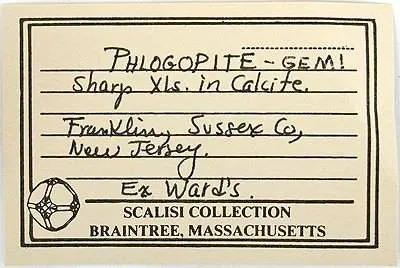 PHLOGOPITE - GEM!
Sharp Xls. in Calcite.
Franklin, Sussex Co,
New Jersey.
Ex Ward's.
SCALISI COLLECTION
BRAINTREE, MASSACHUSETTS